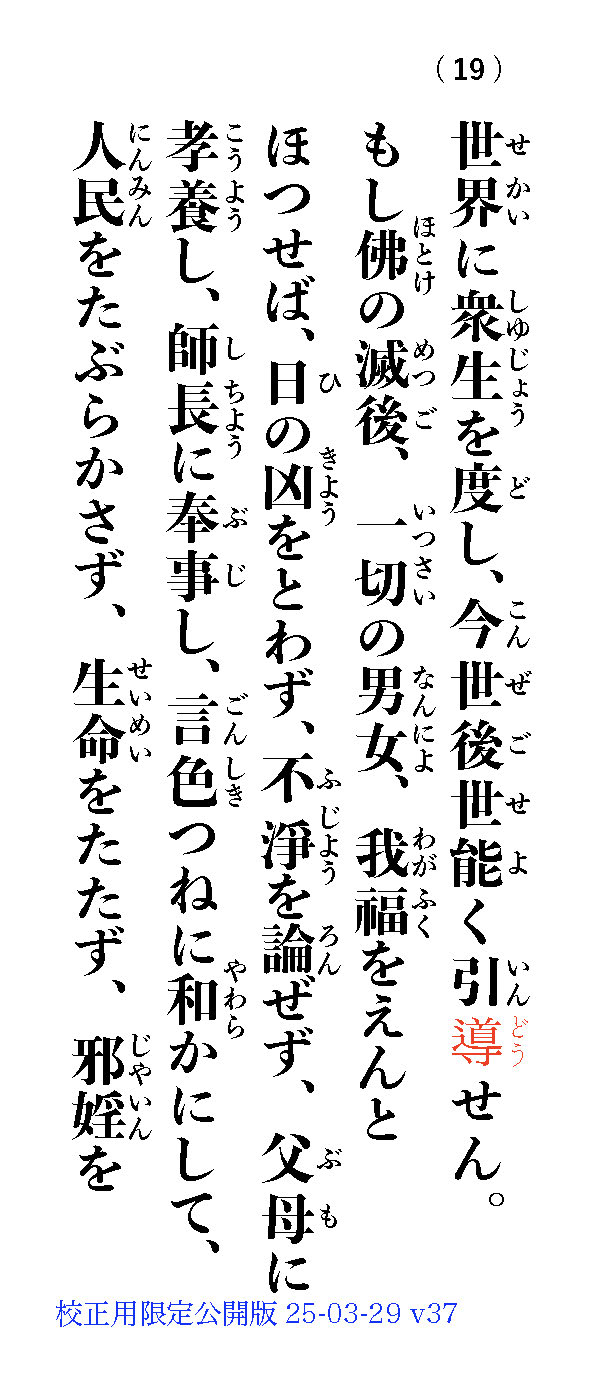 （19）
世界に衆生を度し、今世後世能く引導せん。
もし佛の滅後、一切の男女、我福をえんと
ほつせば、日の凶をとわず、不淨を論ぜず、父母に
孝養し、師長に奉事し、言色つねに和かにして、
人民をたぶらかさず、生命をたたず、邪婬を
校正用限定公開版 25-03-29 v37